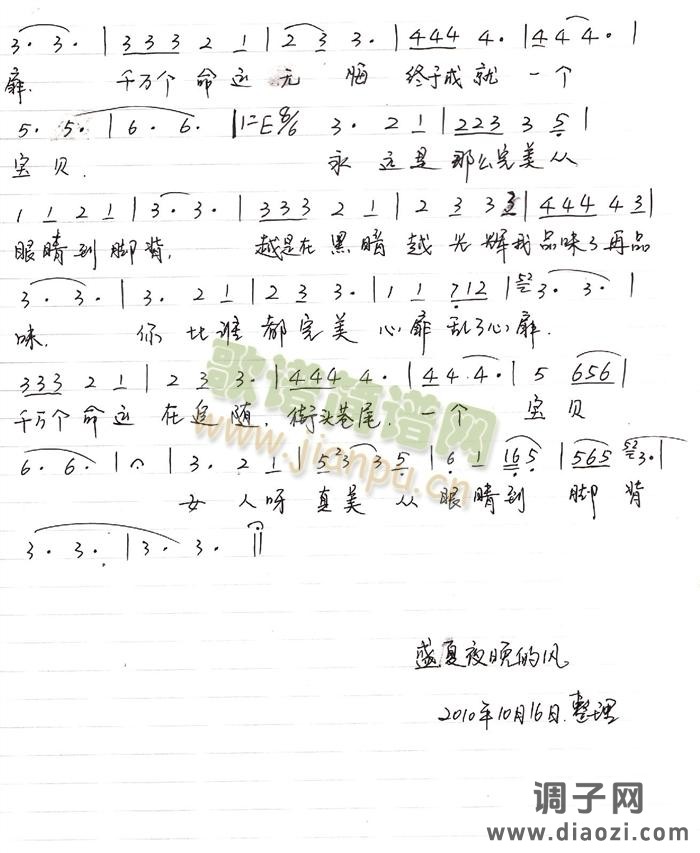 3· 3· | 333 2 1 | 2 3 3· | 444 4· | 44 4· |
扉. 千万个 命运 无 悔 终于成就 一个
5· 5· | 6· 6· | 1=E 6/8 3· 2 1 | 223 3 5 |
宝贝. 永 远是 那么完美从
1 1 2 1 | 3· 3· | 333 2 1 | 2 3 3 3 | 444 4 3 |
眼睛到 脚背, 越是在黑暗 越 光辉我品味了再品
3· 3· | 3· 2 1 | 2 3 3· | 1 1 712 | 52 3· 3· |
味. 你 比谁 都完美 心扉乱了心扉.
333 2 1 | 2 3 3· | 444 4· | 44 4· | 5 656 |
千万个命运 在追 随, 街头巷尾. 一个 宝贝
6· 6· | · | 3· 2 1 | 5 23 3 5 | 6 1 16 5 | 565 52 3· |
女 人呀 真美 从 眼睛到 脚背
3· 3· | 3· 3· ||
歌谱简谱网
www.jianpu.cn
盛夏夜晚的风
2010年10月16日.整理
调子网
www.diaozi.com